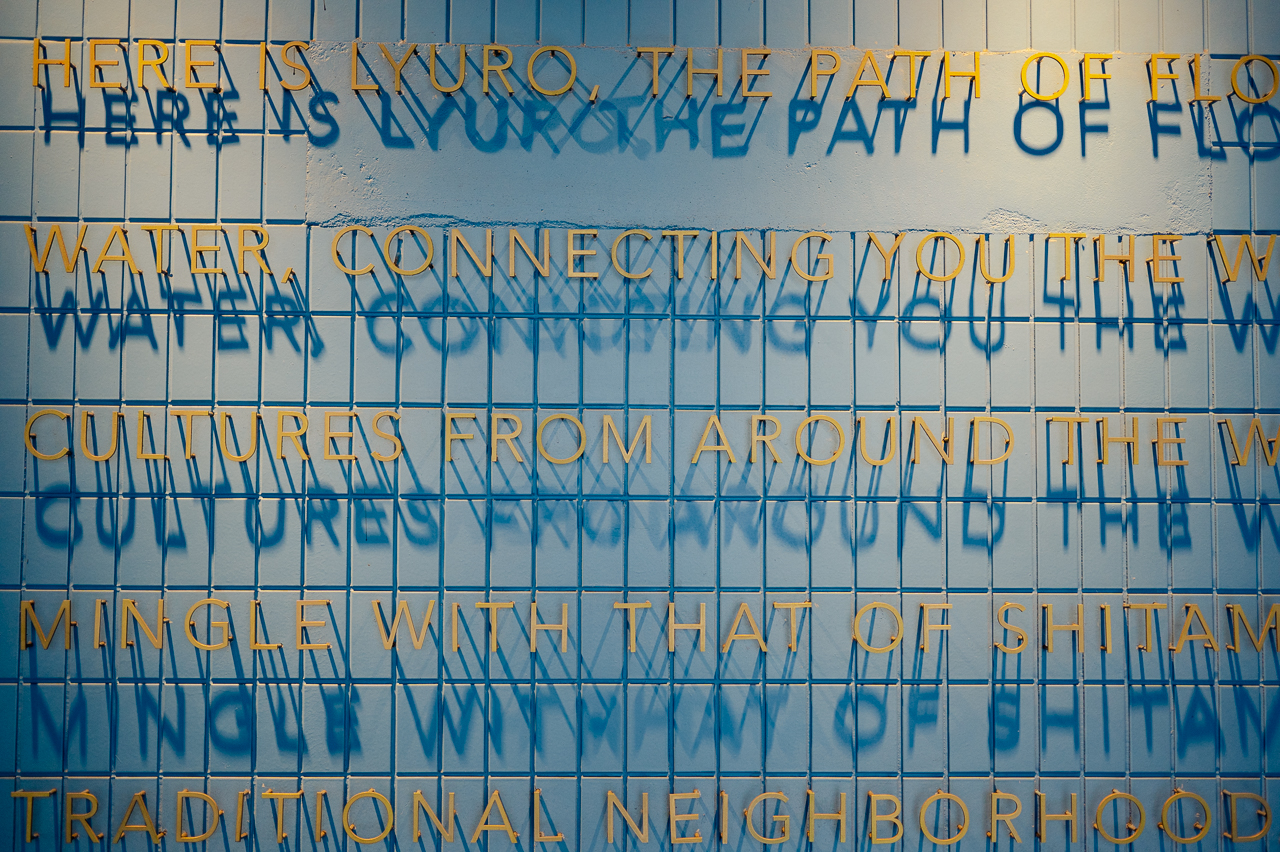 HERE IS LYURO, THE PATH OF FLO
WATER, CONNECTING YOU THE W
CULTURES FROM AROUND THE W
MINGLE WITH THAT OF SHITAM
TRADITIONAL NEIGHBORHOOD